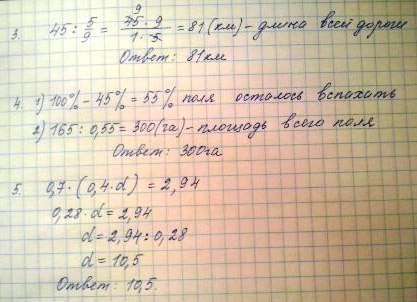 3. 45 : 5/9 = 45 · 9 / 1 · 5 = 81 (км) - длина всей дороги
9
Ответ: 81км
4. 1) 100% - 45% = 55% поля осталось вспахать
2) 165 : 0,55 = 300 (га) - площадь всего поля
Ответ: 300га
5. 0,7 · (0,4 · d) = 2,94
0,28 · d = 2,94
d = 2,94 : 0,28
d = 10,5
Ответ: 10,5.